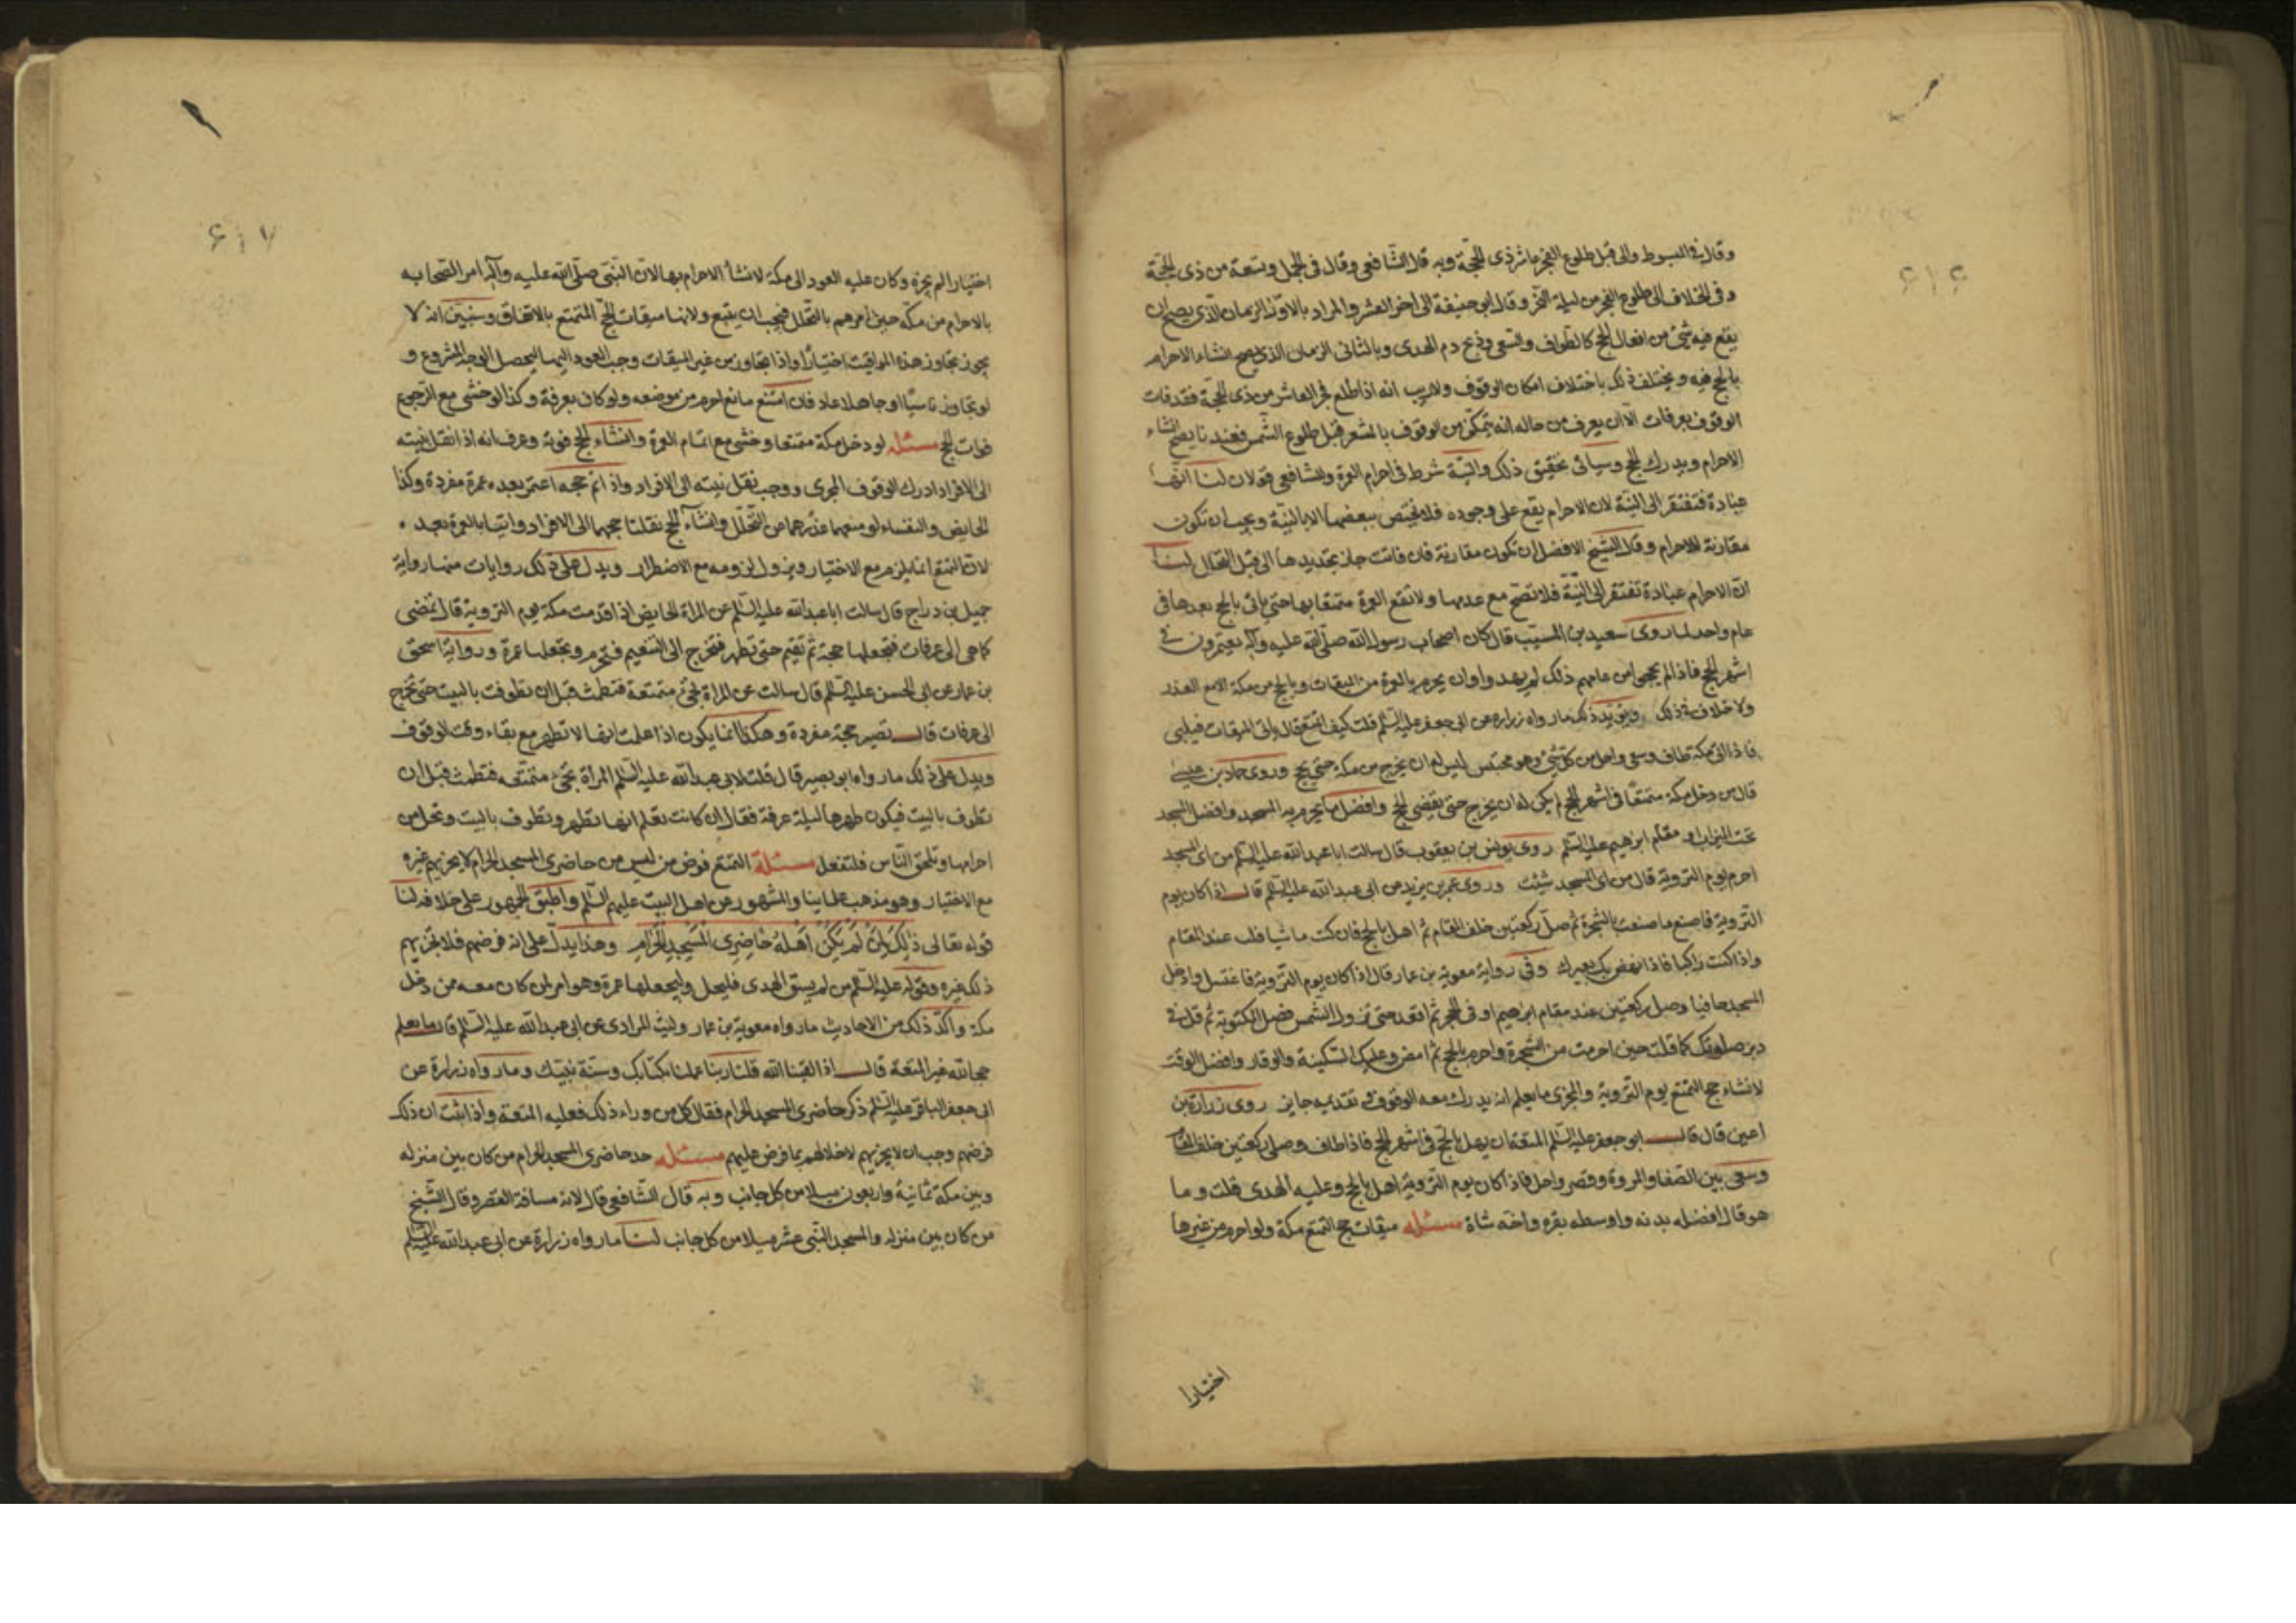 وقال في المبسوط والى قبل طلوع الفجر عاشر ذى الحجة وبه قال الشافعى وقال فى الجمل وتسعة من ذى الحجة
وفى الخلاف الى طلوع الفجر من ليلة النحر وقال ابو حنيفة الى اخر العشر والمراد بالاول الزمان الذى يصح ان
يقع فيه شئ من افعال الحج كالطواف والسعى وذبح دم الهدى وبالثانى الزمان الذى يصح انشاء الاحرام
بالحج فيه ويختلف ذلك باختلاف امكان الوقوف ولا ريب انه اذا طلع فجر العاشر من ذى الحجة فقد فات
الوقوف بعرفات الا ان يعرف من حاله انه يتمكن من الوقوف بالمشعر قبل طلوع الشمس فعندنا يصح انشاء
الاحرام ويدرك الحج وسيأتى تحقيق ذلك والنية شرط فى احرام العمرة وللشافعى قولان لنا انها
عبادة فتفتقر الى النية لان الاحرام يقع على وجوه فلا يختص ببعضها الا بالنية ويجب ان تكون
مقارنة للاحرام وقال الشيخ الافضل ان تكون مقارنة فان فاتت جاز تجديدها الى قبل التحلل لنا
ان الاحرام عبادة تفتقر الى النية فلا تصح مع عدمها ولا تقع العمرة متمتعا بها حتى ياتى بالحج بعدها فى
عام واحد لما روى سعيد بن المسيب قال كان اصحاب رسول الله صلى الله عليه وآله يعتمرون فى
اشهر الحج فاذا لم يحجوا من عامهم ذلك لم يهدوا وان يحرم بالعمرة من الميقات وبالحج من مكة الا مع العذر
ولا خلاف فى ذلك ويؤيد ذلك ما رواه زرارة عن ابى جعفر عليه السلم قلت كيف اتمتع قال ياتى الميقات فيلبى
فاذا اتى مكة طاف وسعى واحل من كل شئ وهو محتبس ليس له ان يخرج من مكة حتى يحج وروى حماد بن عيسى
قال من دخل مكة متمتعا فى اشهر الحج لم يكن له ان يخرج حتى يقضى الحج وافضل ما يحرم به المسجد وافضل المسجد
تحت الميزاب او مقام ابرهيم عليه السلم روى يونس بن يعقوب قال سالت ابا عبد الله عليه السلم من اى المسجد
احرم يوم التروية قال من اى المسجد شئت وروى عمر بن يزيد عن ابى عبد الله عليه السلم قال اذا كان يوم
التروية فاصنع ما صنعت بالشجرة ثم صل ركعتين خلف المقام ثم اهل بالحج فان كنت ماشيا فلب عند المقام
واذا كنت راكبا فاذا نهض بك بعيرك وفى رواية معوية بن عمار قال اذا كان يوم التروية فاغتسل وادخل
المسجد حافيا وصل ركعتين عند مقام ابرهيم او فى الحجر ثم اقعد حتى تزول الشمس فصل المكتوبة ثم قل فى
دبر صلوتك كما قلت حين احرمت من الشجرة واحرم بالحج ثم امض وعليك السكينة والوقار وافضل الوقت
لانشاء حج التمتع يوم التروية والمجزى ما يعلم انه يدرك معه الوقوف و تقديمه جايز روى زرارة بن
اعين قال قال ابو جعفر عليه السلم المتعة ان يهل بالحج فى اشهر الحج فاذا طاف وصلى ركعتين خلف المقام
وسعى بين الصفا والمروة وقصر واحل فاذا كان يوم التروية اهل بالحج وعليه الهدى قلت وما
هو قال افضله بدنه واوسطه بقره واخفه شاة مسئله ميقات حج التمتع مكة ولو احرم من غيرها
اختيارا
٦١٦
اختيارا لم يجزه وكان عليه العود الى مكة لانشأ الاحرام بها لان النبى صلى الله عليه وآله امر الصحابه
بالاحرام من مكه حين امرهم بالتحلل فيجب ان يتبع ولانها ميقات الحج المتمتع بالاتفاق وسنبين انه لا
يجوز تجاوز هذه المواقيت اختيارا واذا تجاوز من غير الميقات وجب العود اليها ليحصل الوجه المشروع و
لو تجاوز ناسيا او جاهلا عاد فان امتنع مانع احرم من موضعه ولو كان بعرفة وكذا لو خشى مع الرجوع
فوات الحج مسئله لو دخل مكة متمتعا وخشى مع اتمام العمرة وانشاء الحج فوته وعرف انه اذا نقل نيته
الى الافراد ادرك الوقوف المجزى ووجب نقل نيته الى الافراد واذا اتم حجه اعتمر بعده عمرة مفردة وكذا
الحايض والنفساء لو منعهما عذرهما من التحلل وانشاء الحج نقلتا حجهما الى الافراد واتيا بالعمرة بعد
لان التمتع انما يلزم مع الاختيار ويزول لزومه مع الاضطرار ويدل على ذلك روايات منها رواية
جميل بن دراج قال سالت ابا عبد الله عليه السلم عن المراة الحايض اذا قدمت مكة يوم التروية قال تمضى
كما هى الى عرفات فتجعلها حجة ثم تقيم حتى تطهر فتخرج الى التنعيم فتحرم وتجعلها عمرة ورواية اسحق
بن عمار عن ابى الحسن عليه السلم قال سالت عن المراة تجئ متمتعة فتطمث قبل ان تطوف بالبيت حتى تخرج
الى عرفات قال تصير حجة مفردة وهكذا انما يكون اذا علمت انها لا تطهر مع بقاء وقت الوقوف
ويدل على ذلك ما رواه ابو بصير قال قلت لابى عبد الله عليه السلم المرأة تجئ متمتعه فتطمث قبل ان
تطوف بالبيت فيكون طهرها ليلة عرفة فقال ان كانت تعلم انها تطهر وتطوف بالبيت وتحل من
احرامها وتلحق الناس فلتفعل مسئلة التمتع فرض من ليس من حاضرى المسجد الحرام لا يجزيهم غيره
مع الاختيار وهو مذهب علماينا والمشهور عن اهل البيت عليهم السلم واطبق الجمهور على خلافه لنا
قوله تعالى ذلك لمن لم يكن اهله حاضرى المسجد الحرام وهذا يدل على انه فرضهم فلا يجزيهم
ذلك غيره وقوله عليه السلم من لم يسق الهدى فليحل وليجعلها عمرة وهو امر لمن كان معه ممن دخل
مكة واكد ذلك من الاحاديث ما رواه معوية بن عمار وليث المرادى عن ابى عبد الله عليه السلم قال ما نعلم
حجا لله غير المتعة قال اذا لقينا الله قلنا ربنا عملنا بكتابك وسنة نبيك وما رواه زرارة عن
ابى جعفر الباقر عليه السلم ذكر حاضرى المسجد الحرام فقال كل من وراء ذلك فعليه المتعة واذا ثبت ان ذلك
فرضهم وجب ان لا يجزيهم لاخلالهم بما فرض عليهم مسئله حد حاضرى المسجد الحرام من كان بين منزله
وبين مكة ثمانية واربعون ميلا من كل جانب وبه قال الشافعى قال لانه مسافة القصر وقال الشيخ
من كان بين منزله والمسجد اثنى عشر ميلا من كل جانب لنا ما رواه زرارة عن ابى عبد الله عليه السلم
٦١٧